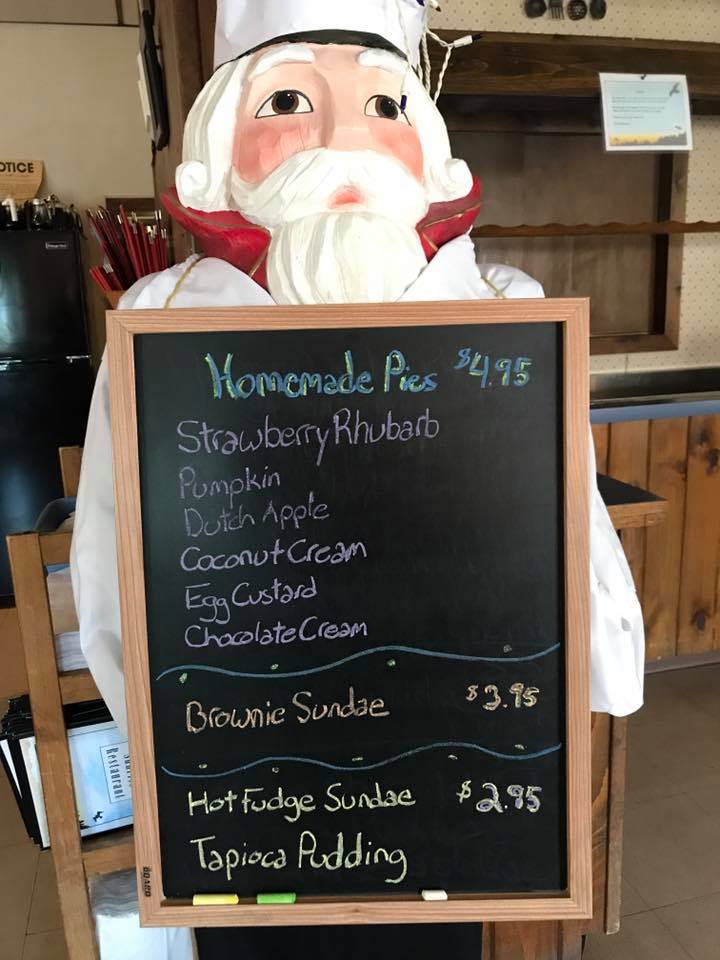 OTICE
Homemade Pies $4.95
Strawberry Rhubarb
Pumpkin
Dutch Apple
Coconut Cream
Egg Custard
Chocolate Cream
Brownie Sundae $3.95
Hot Fudge Sundae $2.95
Tapioca Pudding
Restaurant
BOARD